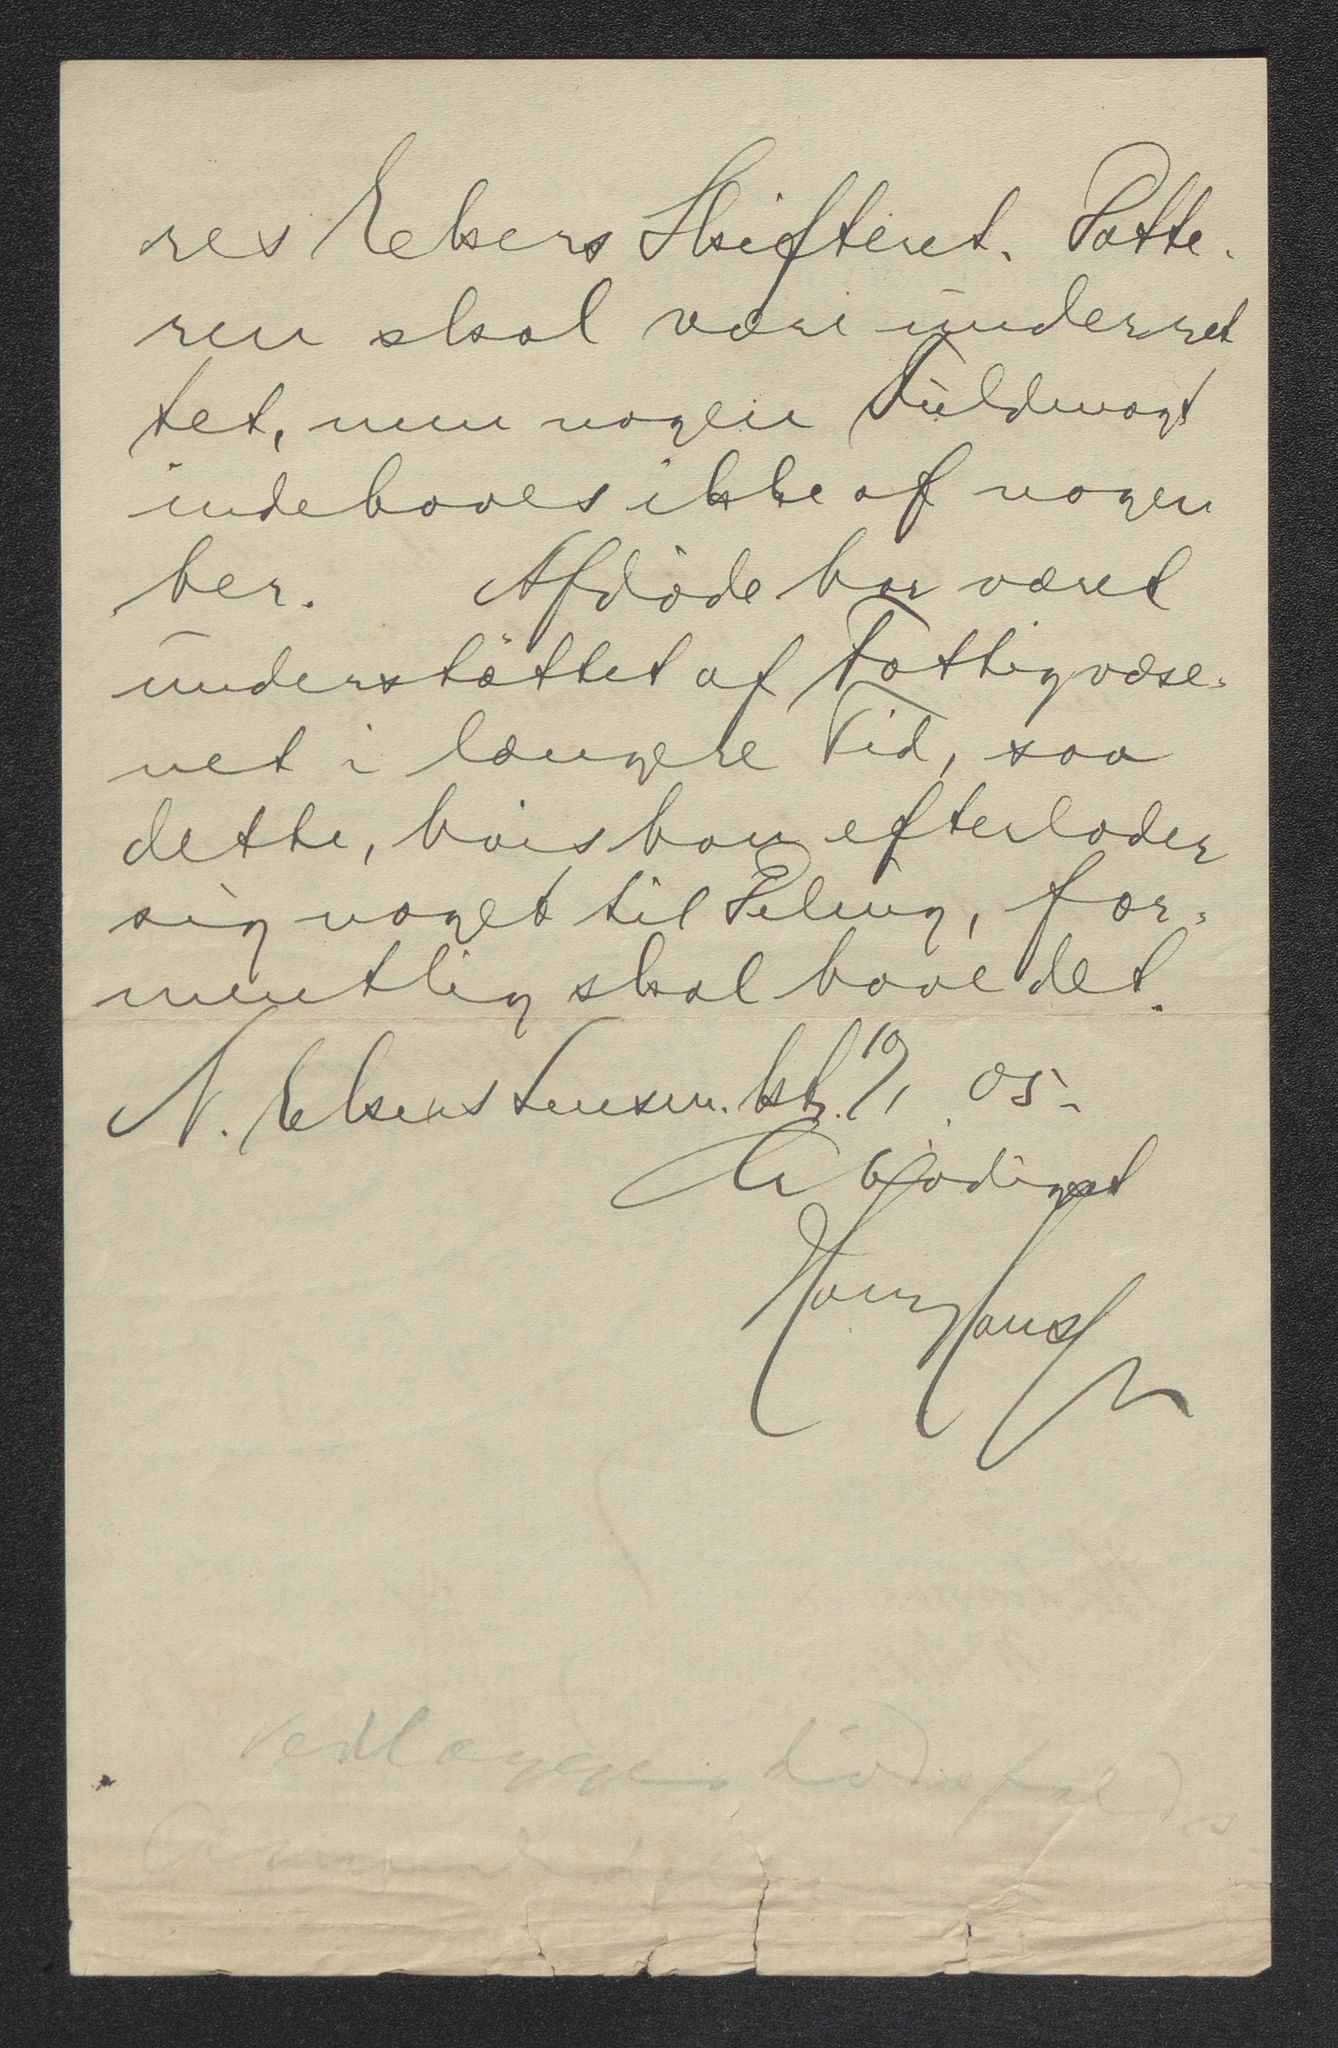 res Eekers Skifteret. Datte-
ren skal være underret
tet, men nogen Fuldmagt
indehaves ikke af nogen
her. Afdöde har været
understöttet af Fattigvæse-
net i længere Tid, saa
dette, hvis han efterlader
sig noget til Deling, for-
mentlig skal have det.
N. Ekers Lensm.ktr. 19/1 05.
Ærbödigst
Hans Hansen
Vedlægges Dödsfalds
Anmeldelse